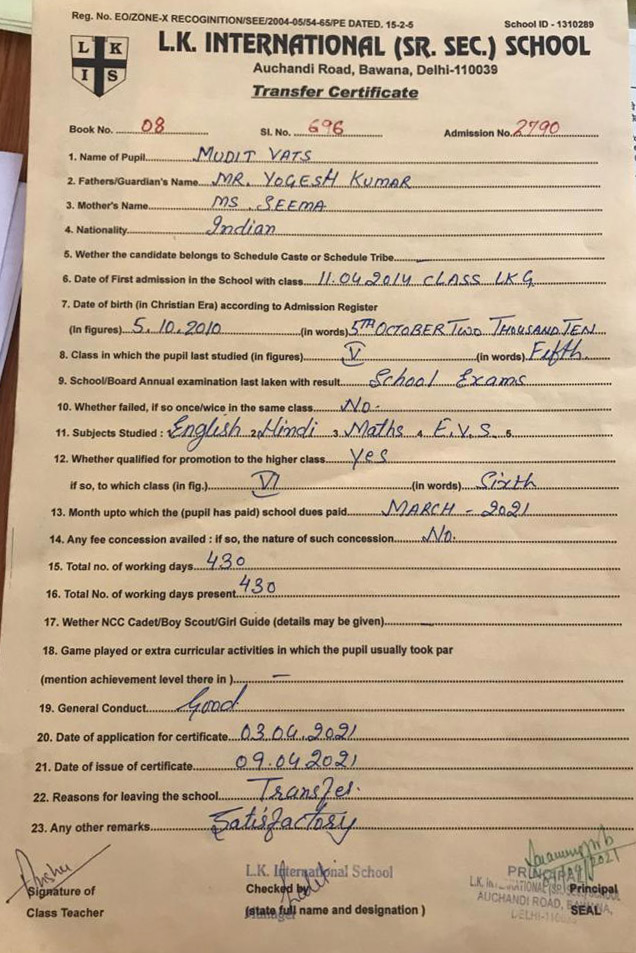 Reg. No. EO/ZONE-X RECOGINITION/SEE/2004-05/54-65/PE DATED. 15-2-5 School ID - 1310289
L K I S
L.K. INTERNATIONAL (SR. SEC.) SCHOOL
Auchandi Road, Bawana, Delhi-110039
Transfer Certificate
Book No. 08 Sl. No. 696 Admission No. 2790
1. Name of Pupil MUDIT VATS
2. Fathers/Guardian's Name MR. YOGESH KUMAR
3. Mother's Name MS. SEEMA
4. Nationality Indian
5. Wether the candidate belongs to Schedule Caste or Schedule Tribe
6. Date of First admission in the School with class 11.04.2014 CLASS LKG
7. Date of birth (in Christian Era) according to Admission Register
(In figures) 5.10.2010 (in words) 5TH OCTOBER TWO THOUSAND TEN
8. Class in which the pupil last studied (in figures) V (in words) Fifth.
9. School/Board Annual examination last taken with result School Exams
10. Whether failed, if so once/wice in the same class No-
11. Subjects Studied : 1 English 2 Hindi 3 Maths 4 E.V.S. 5
12. Whether qualified for promotion to the higher class Yes
if so, to which class (in fig.) VI (in words) Sixth
13. Month upto which the (pupil has paid) school dues paid MARCH - 2021
14. Any fee concession availed : if so, the nature of such concession No.
15. Total no. of working days 430
16. Total No. of working days present 430
17. Wether NCC Cadet/Boy Scout/Girl Guide (details may be given)
18. Game played or extra curricular activities in which the pupil usually took par
(mention achievement level there in ) -
19. General Conduct Good
20. Date of application for certificate 03.04.2021
21. Date of issue of certificate 09.04.2021
22. Reasons for leaving the school Transfer.
23. Any other remarks Satisfactory
L.K. International School
Signature of Checked by PRINCIPAL Principal
Class Teacher (state full name and designation ) SEAL
Manager
L.K. INTERNATIONAL (SR. SEC.) SCHOOL
AUCHANDI ROAD, BAWANA,
DELHI-110039